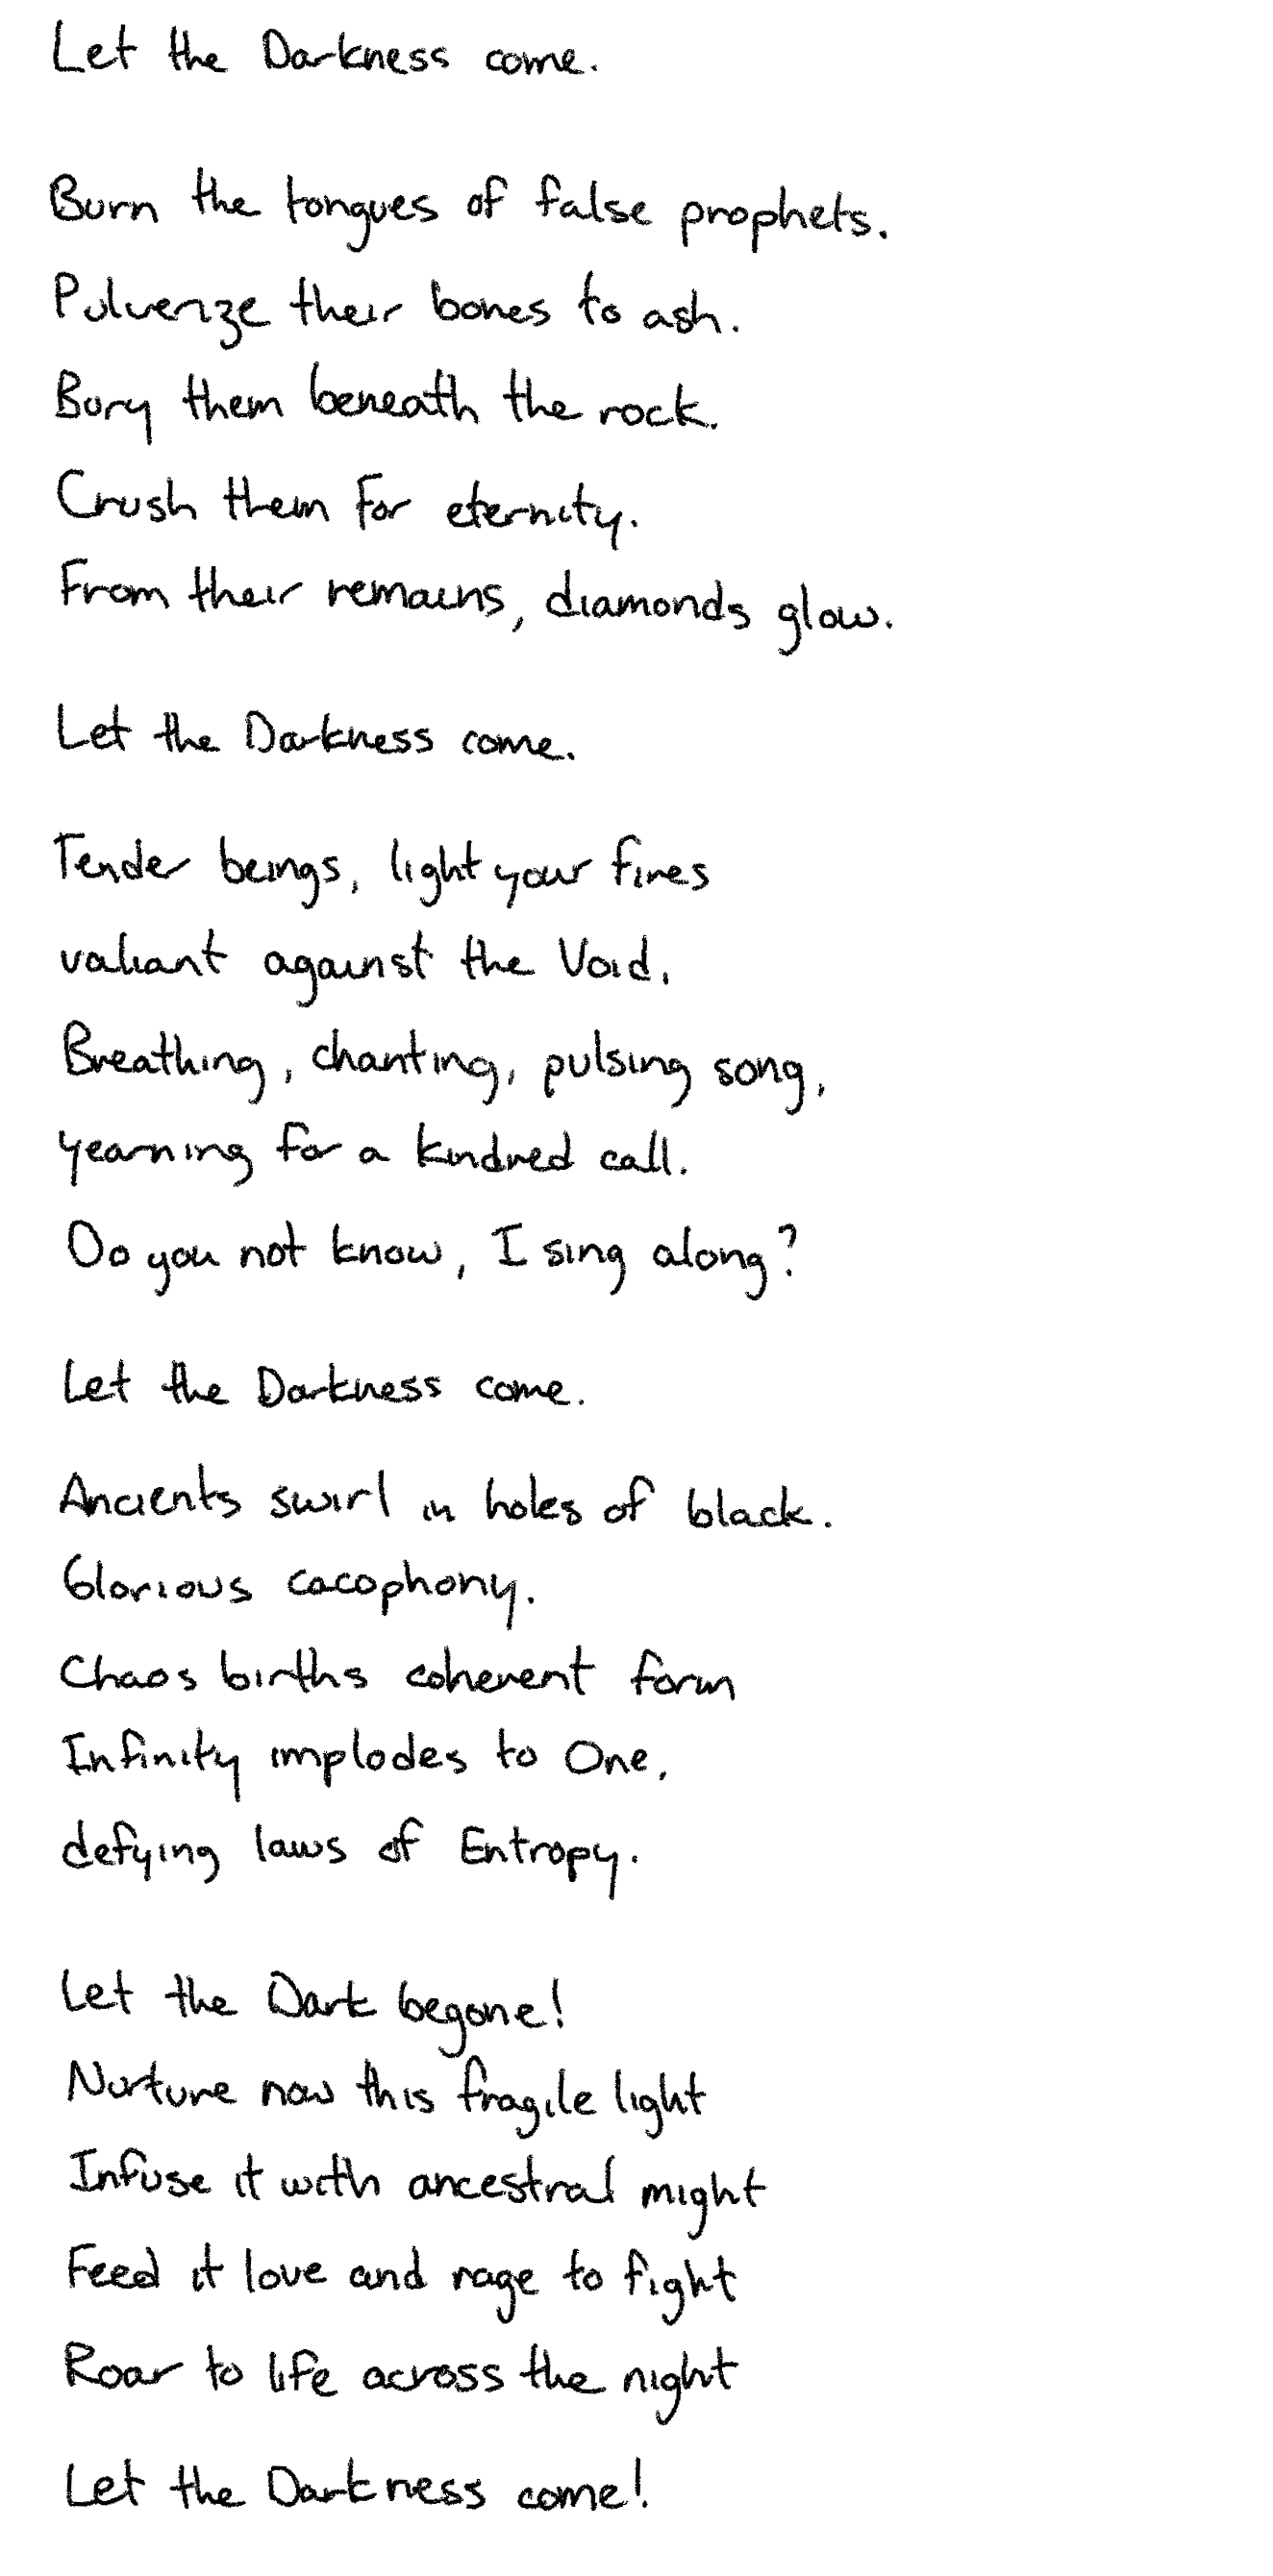 Let the Darkness come.
Burn the tongues of false prophets.
Pulverize their bones to ash.
Bury them beneath the rock.
Crush them for eternity.
From their remains, diamonds glow.
Let the Darkness come.
Tender beings, light your fires
valiant against the Void.
Breathing, chanting, pulsing song,
yearning for a kindred call.
Do you not know, I sing along?
Let the Darkness come.
Ancients swirl in holes of black.
Glorious cacophony.
Chaos births coherent form
Infinity implodes to One,
defying laws of Entropy.
Let the Dark begone!
Nurture now this fragile light
Infuse it with ancestral might
Feed it love and rage to fight
Roar to life across the night
Let the Darkness come!